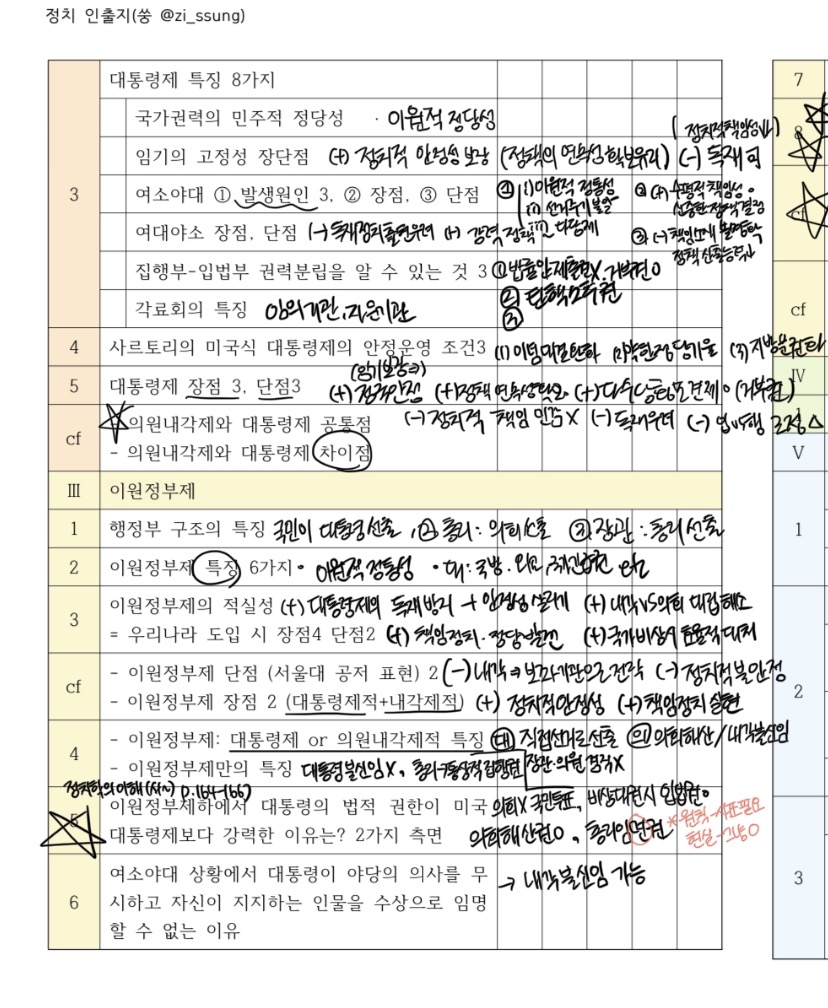 정치 인출지(쏭 @zi_ssung)
대통령제 특징 8가지
7
국가권력의 민주적 정당성 · 이원적 정당성
8
3
임기의 고정성 장단점 (+) 정치적 안정성 보장 (정책의 연속성 확보 유리) (-) 독재
여소야대 ① 발생원인 3, ② 장점, ③ 단점 ① (1) 이원적 정통성
여대야소 장점, 단점 (-) 독재정치 출현 우려 (+) 강력 정책
집행부-입법부 권력분립을 알 수 있는 것 3 ① 법률안 제출권X, 거부권O
② 탄핵소추권
③
각료회의 특징 임의기관, 자문기관
cf
4 사르토리의 미국식 대통령제의 안정운영 조건3 (1) 이념대결 (2) 약한 정당기율 (3) 지방분권
5 대통령제 장점 3, 단점3
(+) 정국안정 (+) 정책 연속성 확보 (+) 다수당 횡포 견제
IV
cf 의원내각제와 대통령제 공통점 (-) 정치적 책임 민감X (-) 독재우려 (-)
- 의원내각제와 대통령제 차이점
V
Ⅲ 이원정부제
1 행정부 구조의 특징 국민이 대통령 선출, ② 총리: 의회 선출 ③ 장관: 총리 선출
1
2 이원정부제 특징 6가지 · 이원적 정통성 · 대: 국방, 외교,
3 이원정부제의 적실성 (+) 대통령제의 독재방지 + 안정성 살리기 (+) 내각VS의회 대립 해소
= 우리나라 도입 시 장점4 단점2 (+) 책임정치·정당발전 (+) 국가비상시 효율적 대처
cf - 이원정부제 단점 (서울대 공저 표현) 2 (-) 내각 ⇒ 보좌기관으로 전락 (-) 정치적 불안정
2
- 이원정부제 장점 2 (대통령제적+내각제적) (+) 정치적 안정성 (+) 책임정치 실현
4 - 이원정부제: 대통령제 or 의원내각제적 특징 대 직접선거로 선출 의 의회해산/내각불신임
- 이원정부제만의 특징 대통령 불신임X, 총리·대통령 장관 의원 겸직X
정치학의 이해(서) p.164-166)
5 이원정부제하에서 대통령의 법적 권한이 미국 의회X 국민투표, 비상대권시 입법권O
대통령제보다 강력한 이유는? 2가지 측면 의회해산권O, 총리임면권
*원칙-사표필요
현실-가능O
6 여소야대 상황에서 대통령이 야당의 의사를 무
시하고 자신이 지지하는 인물을 수상으로 임명 → 내각불신임 가능
할 수 없는 이유
3